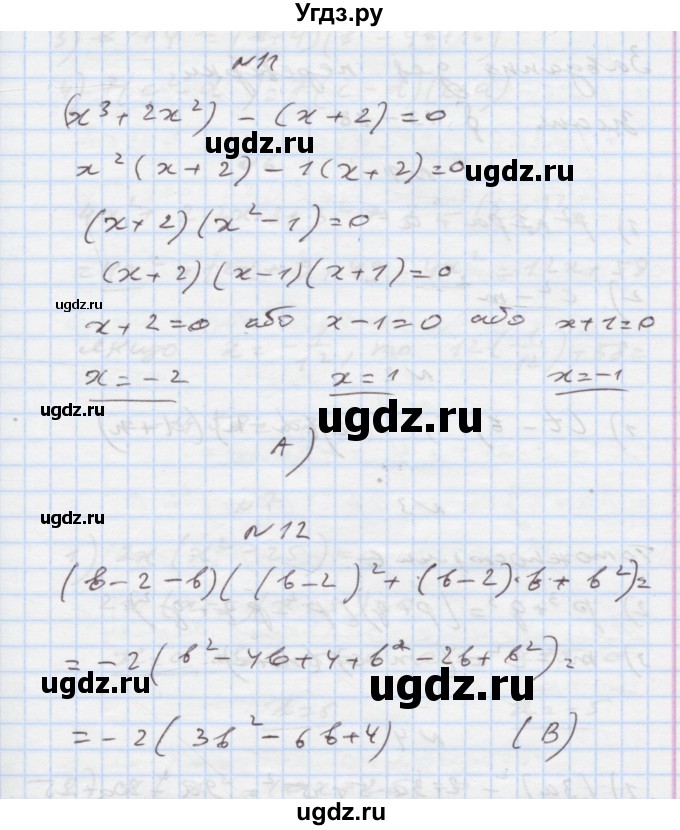 Угдз.ру
N11
(x³ + 2x²) - (x + 2) = 0
ugdz.ru
x²(x + 2) - 1(x + 2) = 0
ugdz.ru
(x + 2)(x² - 1) = 0
(x + 2)(x - 1)(x + 1) = 0
ugdz.ru
x + 2 = 0 або x - 1 = 0 або x + 1 = 0
x = -2 x = 1 x = -1
ugdz.ru
A)
ugdz.ru
ugdz.ru
N12
(b - 2 - b)((b - 2)² + (b - 2)·b + b²) =
= -2(b² - 4b + 4 + b² - 2b + b²) =
ugdz.ru
ugdz.ru
= -2(3b² - 6b + 4) (В)
ugdz.ru